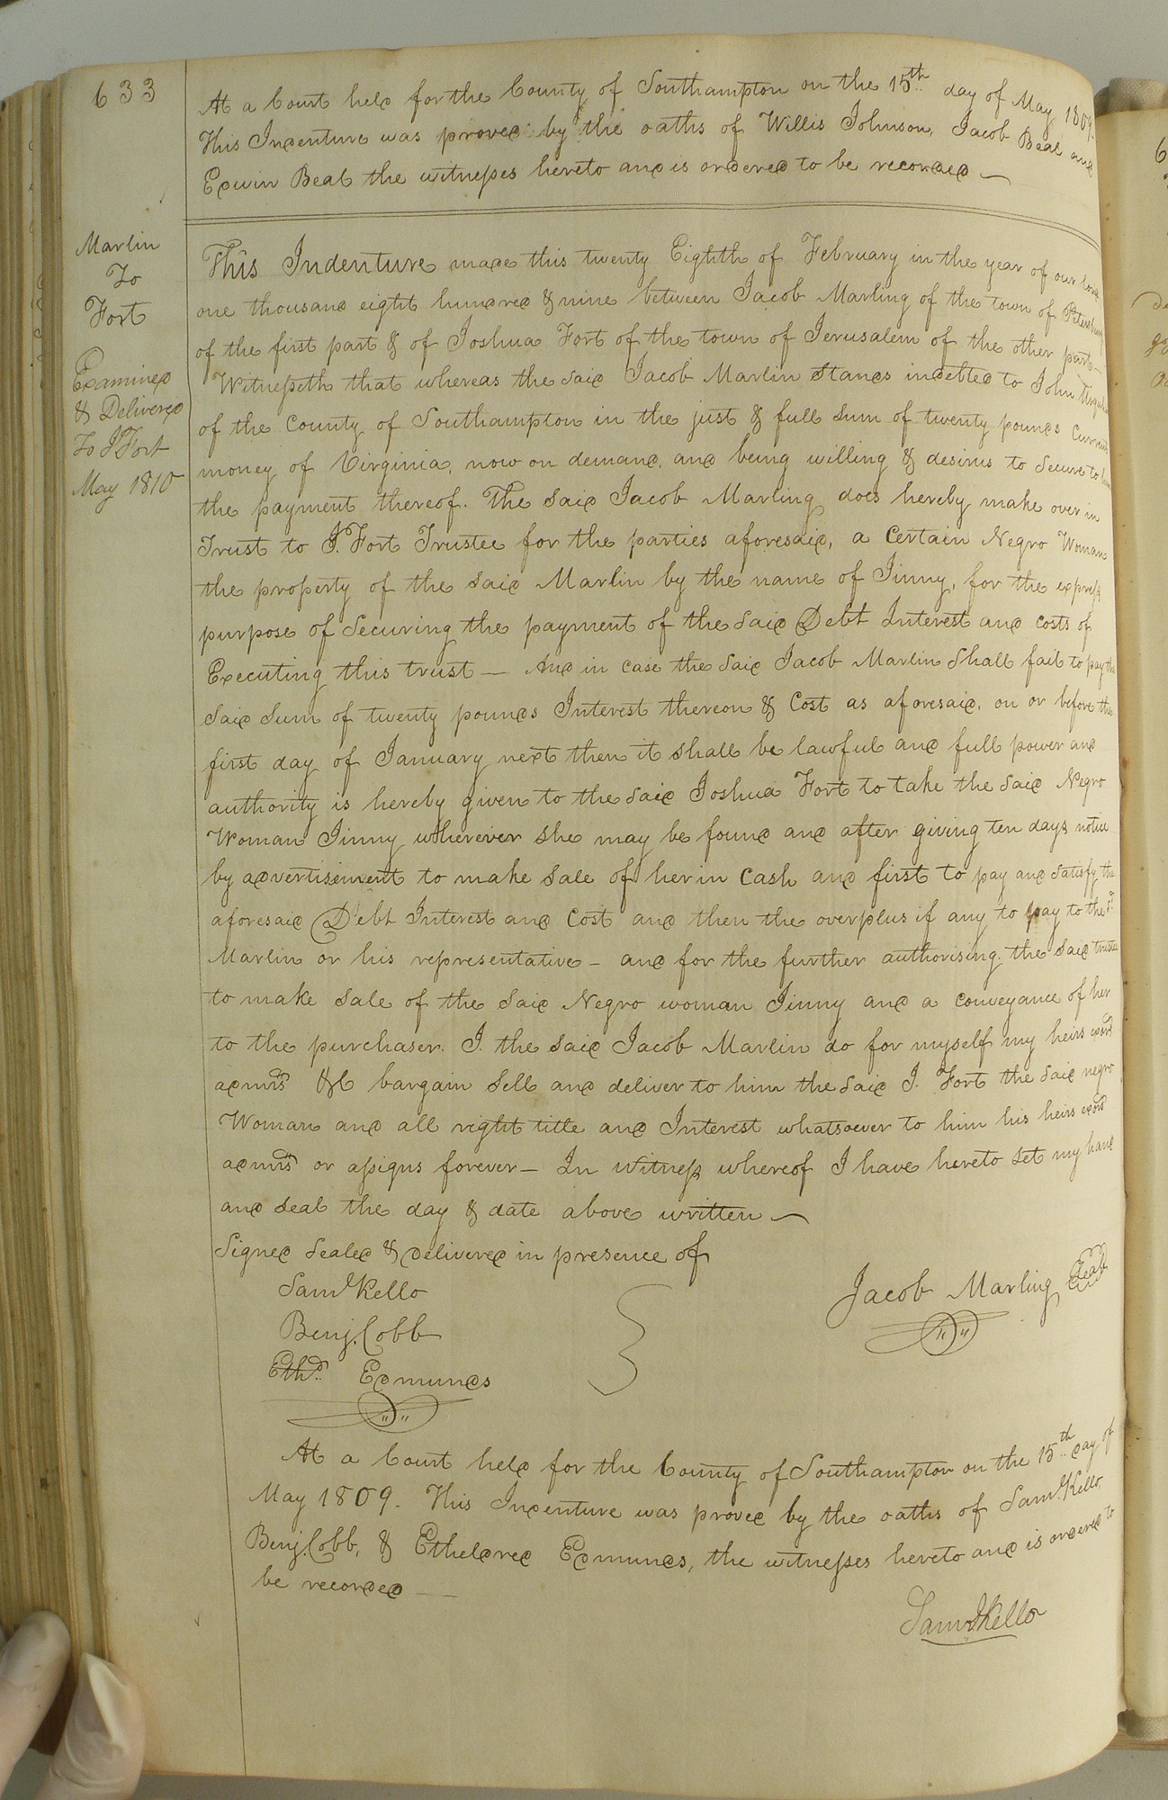 633
At a Court held for the County of Southampton on the 15th day of May 1809.
This Indenture was proved by the oaths of Willis Johnson, Jacob Beal and
Edwin Beal the witnesses hereto and is ordered to be recorded
Marlin
To
Fort
Examined
& Delivered
To J Fort
May 1810
This Indenture made this twenty Eighth of February in the year of our Lord
one thousand eight hundred & nine between Jacob Marling of the town of Petersburg
of the first part & of Joshua Fort of the town of Jerusalem of the other part
Witnesseth that whereas the said Jacob Marlin Stands indebted to John
of the County of Southampton in the just & full Sum of twenty pounds Current
money of Virginia, now on demand, and being willing & desirus to Secure to him
the payment thereof. The Said Jacob Marling does hereby make over in
Trust to J. Fort Trustee for the parties aforesaid, a Certain Negro Woman
the property of the Said Marlin by the name of Jinny, for the express
purpose of Securing the payment of the Said Debt Interest and costs of
Executing this trust — And in case the Said Jacob Marlin Shall fail to pay the
Said Sum of twenty pounds Interest thereon & Cost as aforesaid, on or before the
first day of January next then it Shall be lawful and full power and
authority is hereby given to the Said Joshua Fort to take the Said Negro
Woman Jinny wherever She may be found and after giving ten days notice
by advertisement to make Sale of her in Cash and first to pay and Satisfy the
aforesaid Debt Interest and Cost and then the overplus if any to pay to the sd.
Marlin or his representative – and for the further authorising the Said trustee
to make Sale of the Said Negro woman Jinny and a conveyance of her
to the purchaser. I. the Said Jacob Marlin do for myself my heirs exors
admrs &C bargain Sell and deliver to him the Said J. Fort the Said negro
Woman and all right title and Interest whatsoever to him his heirs exors
admrs or assigns forever – In Witness whereof I have hereto Set my hand
and Seal the day & date above written
Signed Sealed & Delivered in presence of
Saml Kello
Jacob Marling Seal
Benj. Cobb
Ethd. Edmunds
At a Court held for the County of Southampton on the 15th day of
May 1809. This Indenture was proved by the oaths of Saml Kello
Benj. Cobb, & Etheldred Edmunds, the witnesses hereto and is ordered to
be recorded
Saml Kello